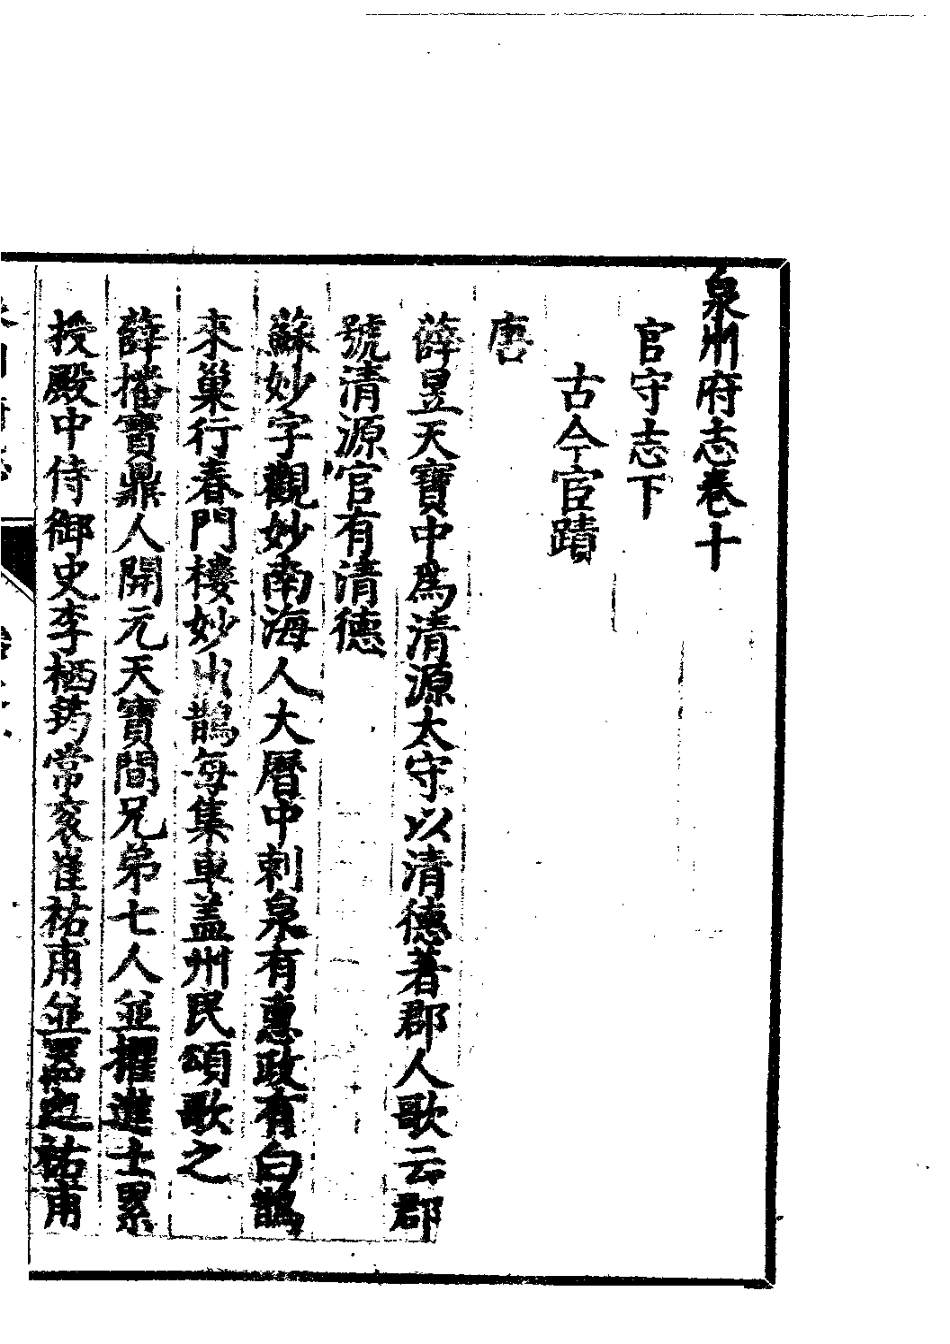 泉州府志卷十
官守志下
古今宦蹟
唐
薛昱天寶中爲清源太守以清德著郡人歌云郡
號清源官有清德
蘇妙字觀妙南海人大曆中刺泉有惠政有白鵲
來巢行春門樓妙出鵲每集車蓋州民頌歌之
薛播寶鼎人開元天寶間兄弟七人並擢進士累
授殿中侍御史李栖筠常袞崔祐甫並器之祐甫